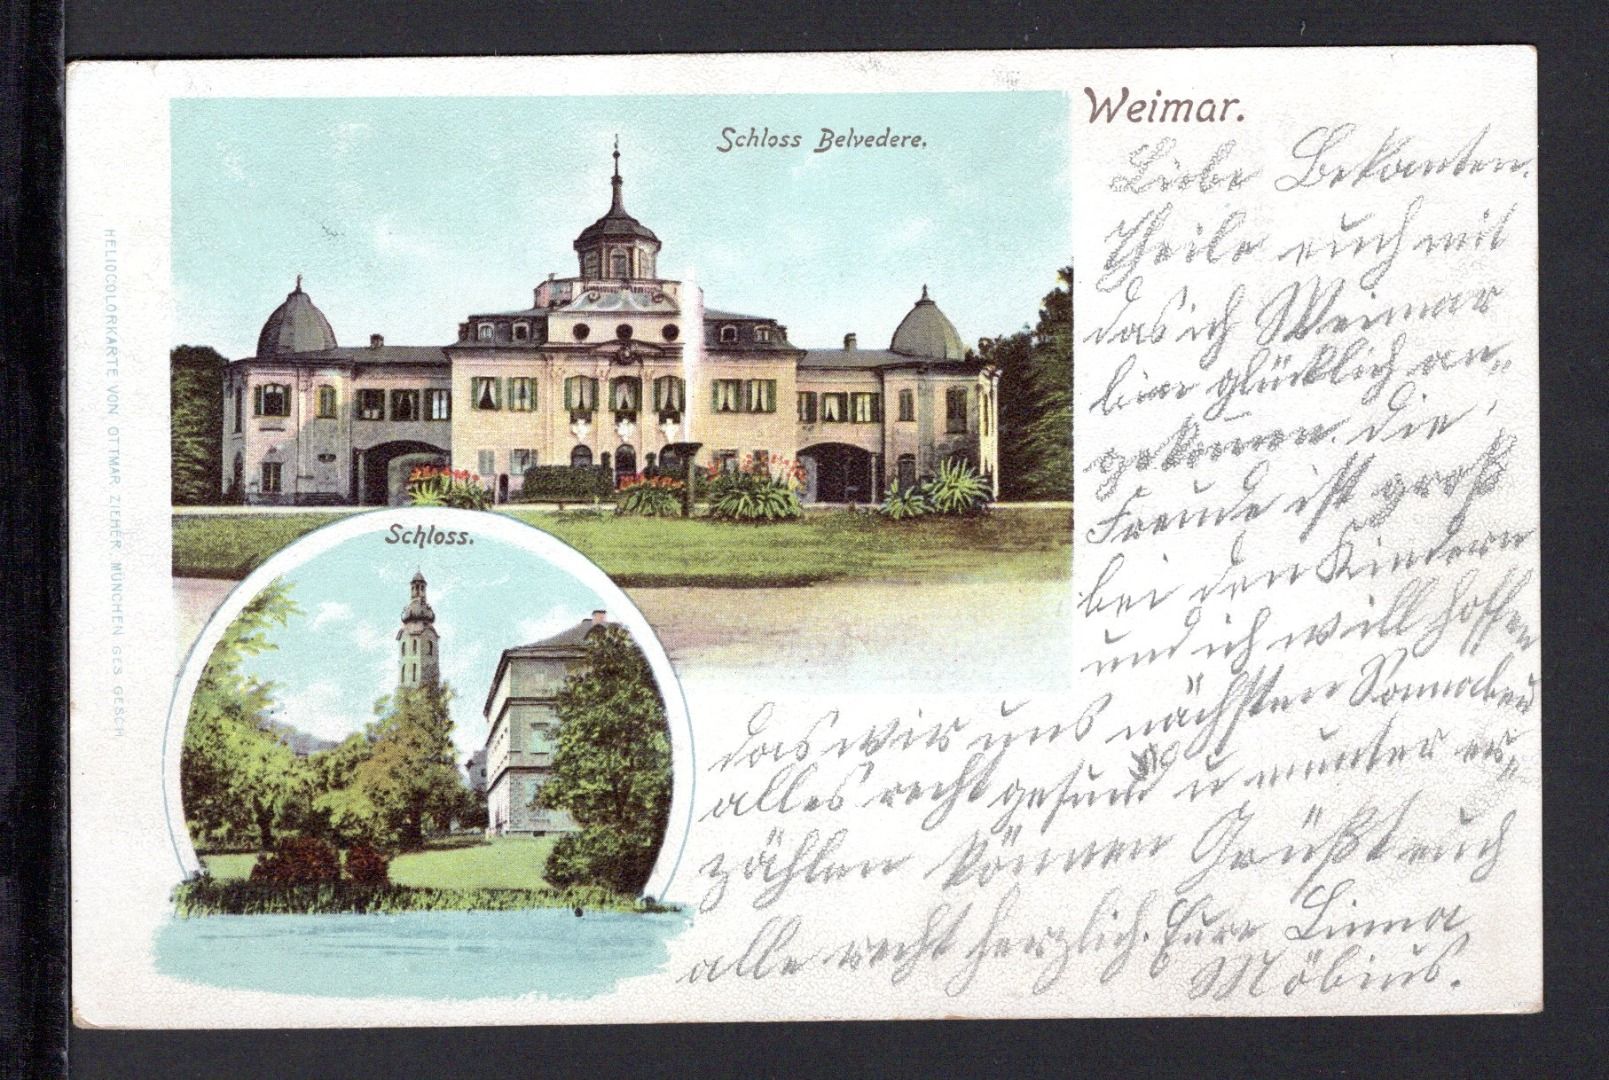 Weimar.
Schloss Belvedere.
Schloss.
HELIOCOLORKARTE VON OTTMAR ZIEHER MÜNCHEN GES. GESCH
Liebe Bekanten.
Theile euch mit
das ich Weimar
bin glücklich an„
gekomen. Die
Freude ist groß
bei den Kindern
und ich will hoffen
das wir uns nächsten Sonnabend
alles recht gesund u munter er„
zählen können Grüßt euch
alle recht herzlich. Eure Linna
Möbius.